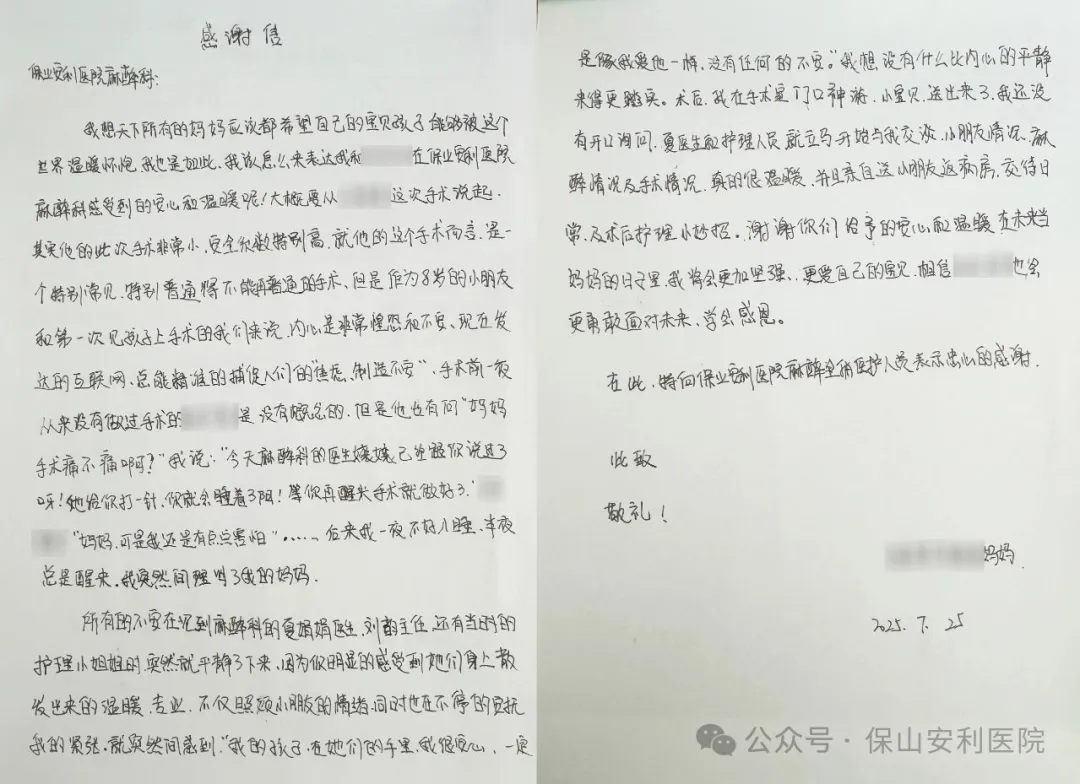 感谢信
保山安利医院麻醉科:
我想天下所有的妈妈应该都希望自己的宝贝孩子能够被这个
世界温暖怀抱,我也是如此,我该怎么来表达我和 在保山安利医院
麻醉科感受到的安心和温暖呢!大概要从 这次手术说起.
其实他的此次手术非常小,安全系数特别高,就他的这个手术而言,是一
个特别常见、特别普通得不能再普通的手术,但是作为8岁的小朋友
和第一次见孩子上手术的我们来说,内心是非常惶恐和不安、现在发
达的互联网,总能精准的捕捉人们的"焦虑、制造不安",手术前一夜
从来没有做过手术的 是没有概念的,但是他也有问"妈妈
手术痛不痛啊?"我说:"今天麻醉科的医生嬢嬢已经跟你说过了
呀!她给你打一针,你就会睡着了哦!等你再醒来手术就做好了."
"妈妈,可是我还是有点点害怕"……后来我一夜不好入睡,半夜
总是醒来,我突然间理解了我的妈妈.
所有的不安在见到麻醉科的夏娟娟医生,刘 主任,还有当时的
护理小姐姐时,突然就平静了下来,因为你明显的感受到她们身上散
发出来的温暖、专业,不仅照顾小朋友的情绪,同时也在不停的安抚
我的紧张,就突然间感到:"我的孩子,在她们的手里,我很安心,一定
是像我爱他一样,没有任何的不安。"我想没有什么比内心的平静
来得更踏实。术后,我在手术室门口神游,小宝贝,送出来了,我还没
有开口询问,夏医生和护理人员就立马开始与我交谈,小朋友情况、麻
醉情况及手术情况,真的很温暖,并且亲自送小朋友返病房,交待日
常、及术后护理小妙招。谢谢你们给予的安心和温暖,在未来当
妈妈的日子里,我将会更加坚强、更爱自己的宝贝,相信 也会
更勇敢面对未来、学会感恩。
在此,特向保山安利医院麻醉全体医护人员表示衷心的感谢.
此致
敬礼!
妈妈.
2025.7.25
公众号·保山安利医院